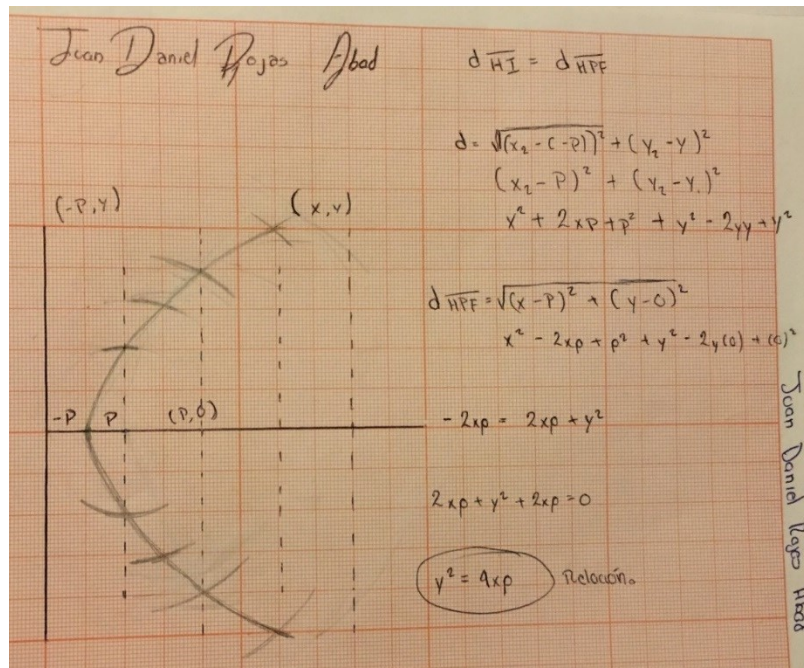 Juan Daniel Rojas Abad
d HI = d HPF
d = √(x₂ - (-P))² + (y₂ - y)²
(x₂ - P)² + (y₂ - y.)²
x² + 2xp + p² + y² - 2yy + y²
(-P, y)
(x, y)
d HPF = √(x - P)² + (y - 0)²
x² - 2xp + p² + y² - 2y(0) + (0)²
-P
P
(P, 0)
- 2xp = 2xp + y²
2xp + y² + 2xp = 0
y² = 4xp Relación.
Juan Daniel Rojas Abad